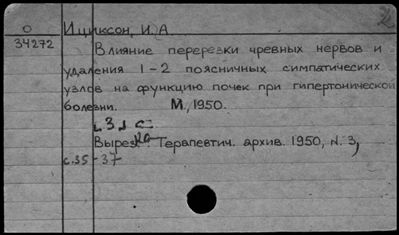 О
34272
Ициксон, И. А.
Влияние перерезки чревных нервов и
удаления 1-2 поясничных симпатических
узлов на функцию почек при гипертонической
болезни. М., 1950.
Вырезка Терапевтич. архив. 1950, N. 3,
с. 35-37